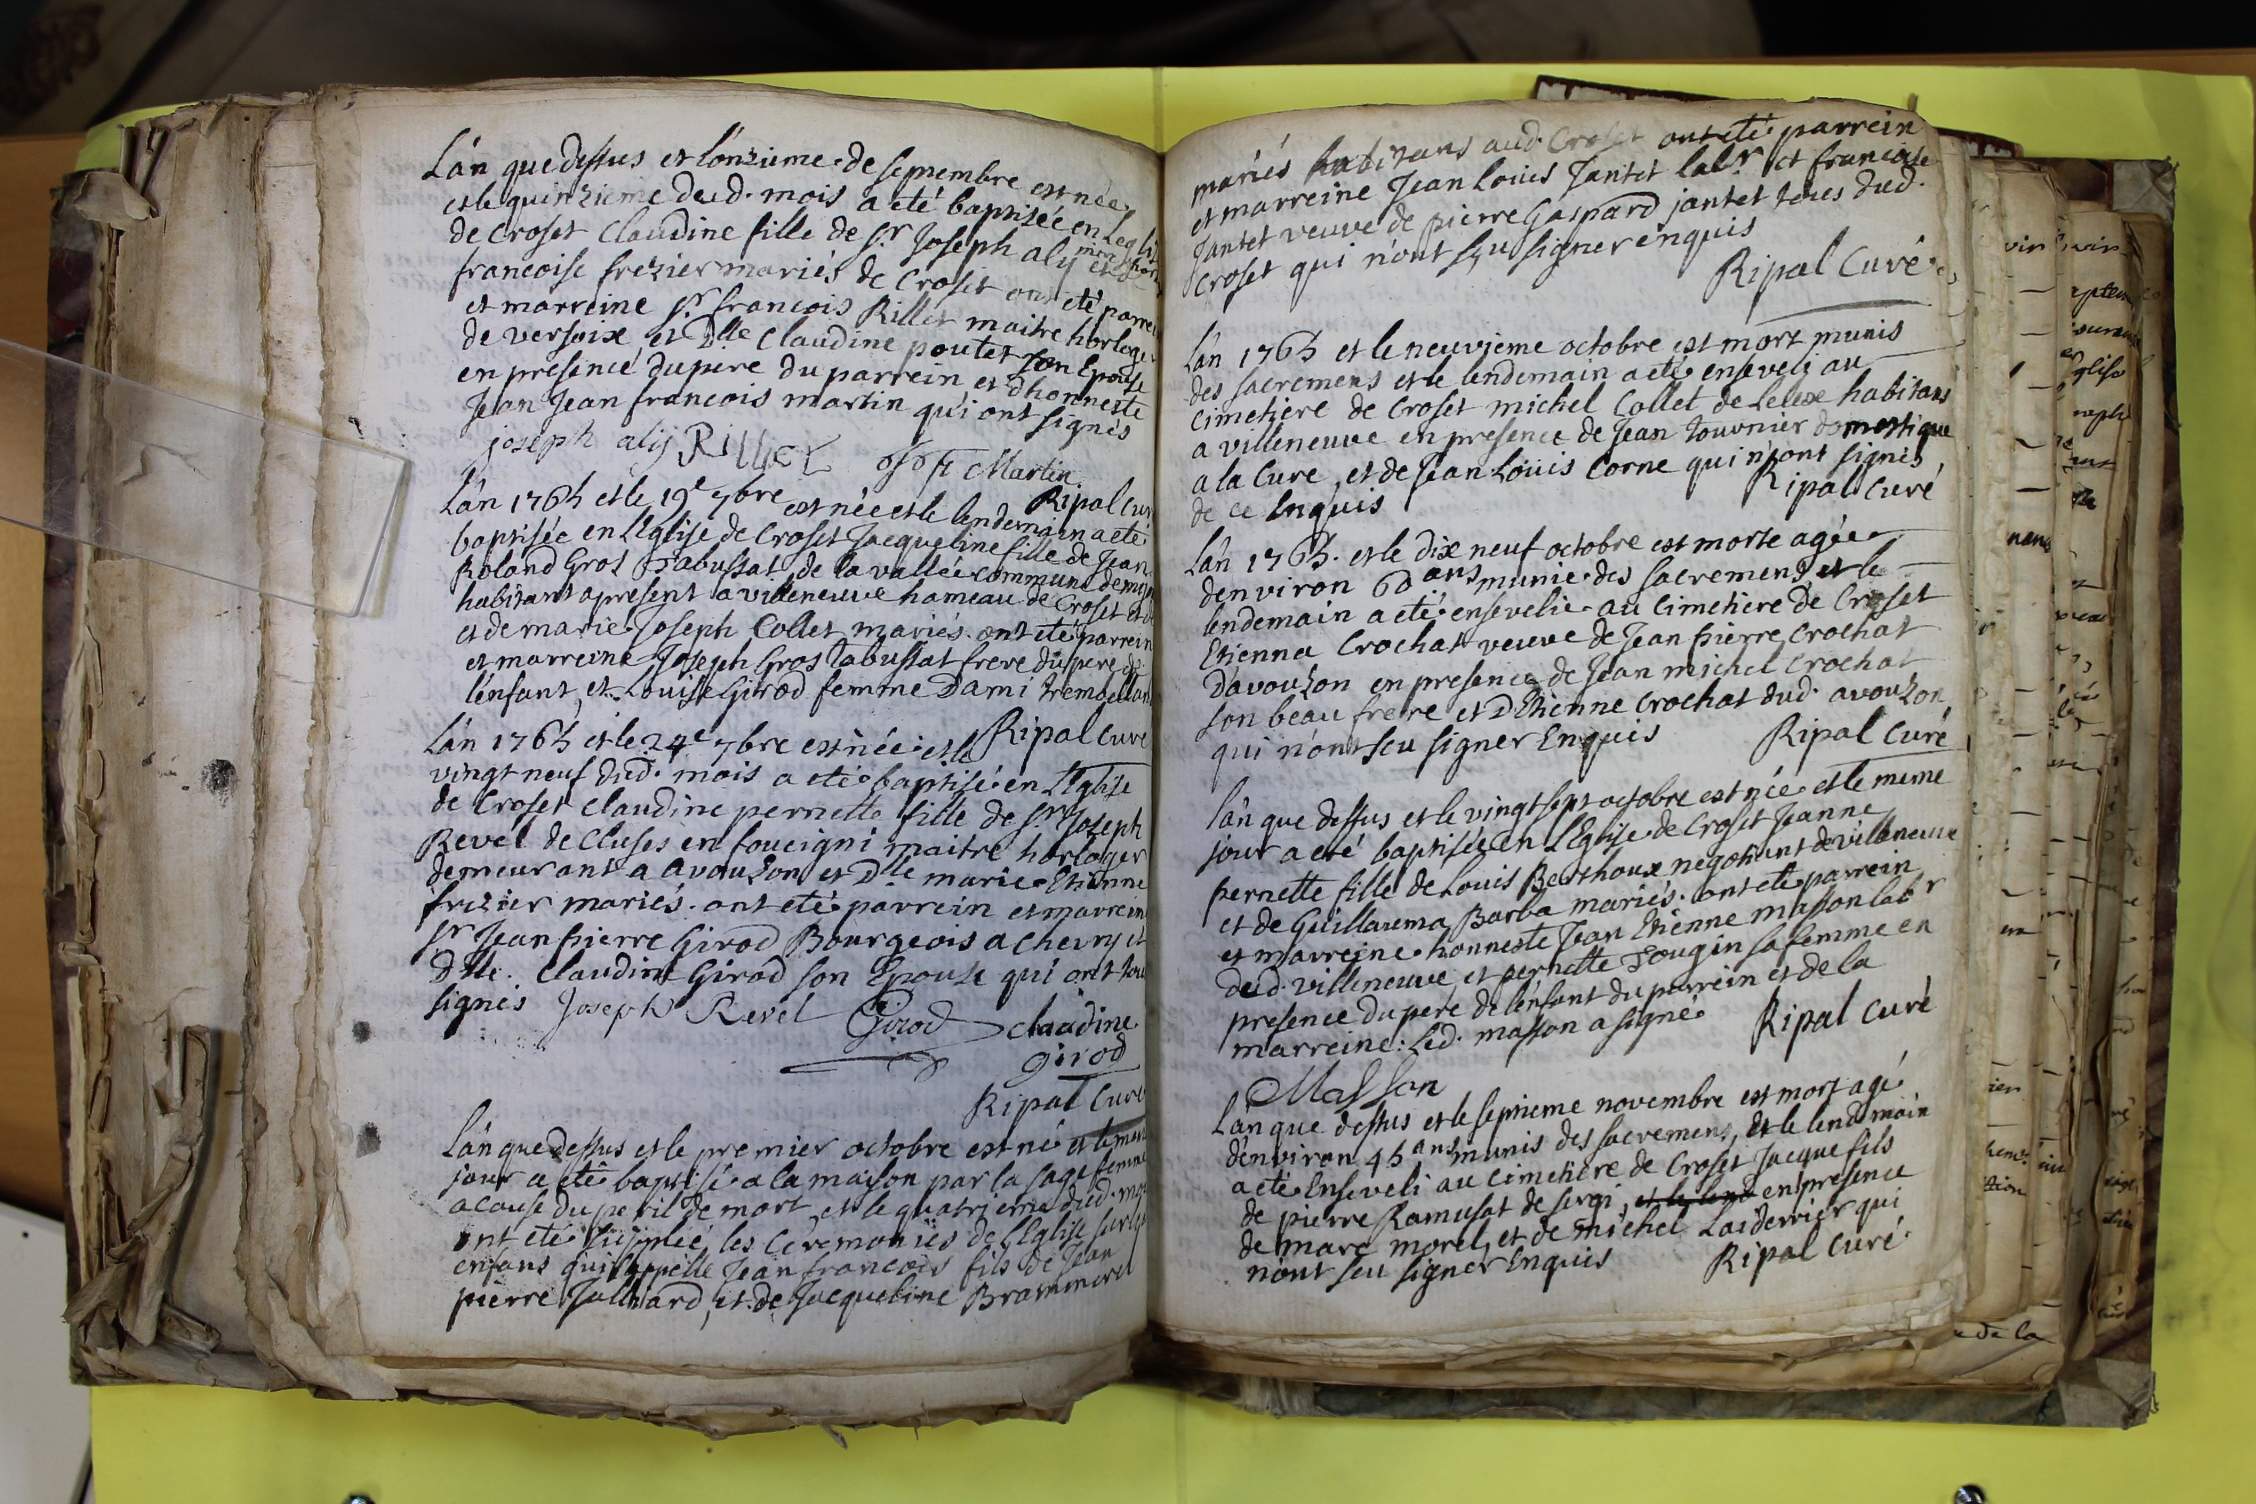 Lán que dessus et lónzieme de septembre est née
et le quinzieme dud. mois a eté baptisée en Legli
de Croset Claudine fille de Sr Joseph aly
francoise frezier mariés de Croset ont eté parre
et marreine Sr francois Rillet maitre horloger
de versoix et Dlle Claudine poutet son Epouse
en presence du pere du parrein et d'honneste
Jean Jean francois martin qui ont signés
joseph alij Rilliet Martin
Ripal Cur
Lán 1765 et le 19e 7bre est née et le lendemain a eté
baptisée en Léglise de Croset Jacqueline fille de Jean
Roland Gros Tabussat de la vallée commune de
habitant apresent a villeneuve hameau de Croset
et de marie Joseph Collet mariés ont eté parrein
et marreine Joseph Gros Tabussat frere du pere de
lénfant, et Louise Girod femme Dami
Ripal Curé
Lán 1765 et le 24e 7bre est née et le
vingt neuf dud. mois a eté baptisé en L'Eglise
de Croset Claudine pernette fille de Sr Joseph
Revel de Cluses en foucigni maitre horloger
demeurant a avouzon et Dlle marie Etienne
frezier mariés. ont eté parrein et marreine
Sr Jean pierre Girod Bourgeois a Chevry et
Dlle. Claudine Girod son Epouse qui ont tou
signés Joseph Revel Girod claudine
girod
Ripal Curé
Lán que dessus et le premier octobre est né et le mem
jour a eté baptisé a la maison par la sage femme
a cause du peril de mort, et le quatrieme dud. moi
ont eté suplée les Ceremonies de L'Eglise sur les
enfans qui sappelle Jean francois fils de Jean
pierre Julliard, et de Jacqueline Brammerel
mariés habitans aud. Croset ont eté parrein
et marreine Jean Louis Jantet labr. et francoise
Jantet veuve de pierre Gaspard jantet tous dud.
Croset qui n'ont sçu signer enquis
Ripal Curé
Lán 1765 et le neuvieme octobre est mort munis
des sacremens et le lendemain a eté enseveli au
Cimetiere de Croset michel Collet de Lelex habitans
a villeneuve en presence de Jean Tournier domestique
a la Cure, et de Jean Loüis Corne qui n'ont signés
de ce Enquis Ripal Curé
Lán 1765. et le dix neuf octobre est morte agée
denviron 60 ans munie des sacremens, et le
lendemain a eté ensevelie au Cimetiere de Croset
Etienna Crochat veuve de Jean pierre Crochat
Davouzon en presence de Jean michel Crochat
son beau frere et D'Etienne Crochat dud. avouzon
qui n'ont seu signer Enquis Ripal Curé
lán que dessus et le vingt sept octobre est née et le meme
jour a eté baptisée en L'Eglise de Croset Jeanne
pernette fille de Louis Berthoux negotiant de villeneuve
et de Guillauma Barba mariés. ont eté parrein
et marreine honneste Jean Etienne masson labr
dud. villeneuve et pernette Fougin sa femme en
presence du pere de lénfant du parrein et de la
marreine: Led. masson a signé. Ripal Curé
Masson
Lán que dessus et le septieme novembre est mort agé
denviron 45 ans munis des sacremens, Et le lendemain
a eté Enseveli au Cimetiere de Croset Jacque fils
de pierre Ramusat de sergi, et le lend en presence
de marc morel, et de michel Laiderrier qui
n'ont seu signer Enquis Ripal Curé.